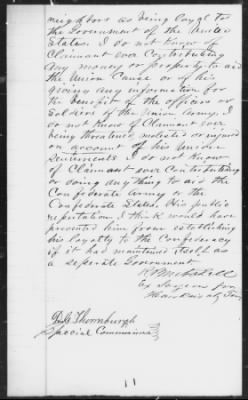 neighbors as being loyal to
the Government of the United
States. I do not Know of
Claimant ever Contributing
any money or property to aid
the Union Cause or of his
giving any information for
the benefit of the officers or
Soldiers of the Union Army. I
do not Know of Claimant ever
being threatened, molested or injured
on account of his Union
Sentiments. I do not Know
of Claimant ever Contributing
or doing any thing to aid the
Confederate Army or the
Confederate States. His public
reputation I think would have
prevented him from establishing
his loyalty to the Confederacy
if it had maintained itself as
a seperate Government
Ex
for
Hawkins
Thornburgh
Special Commissioner
11